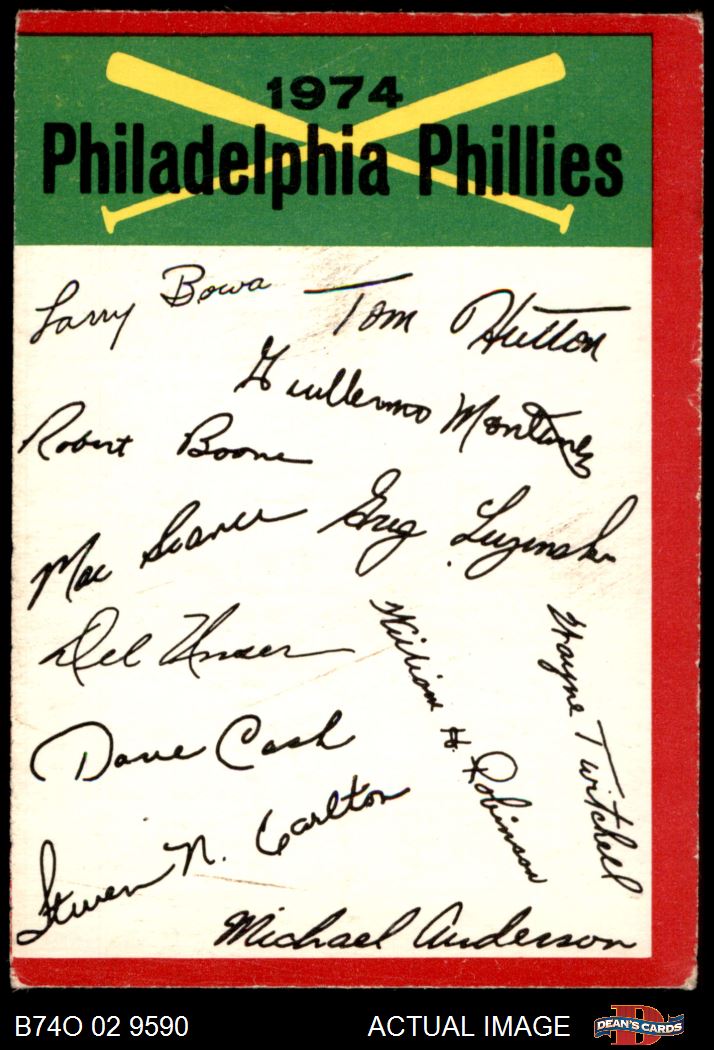 1974
Philadelphia Phillies
Larry Bowa
Tom Hutton
Guillermo Montanez
Robert Boone
Mac Scarce
Greg Luzinski
Del Unser
William H. Robinson
Wayne Twitchell
Dave Cash
Steven N. Carlton
Michael Anderson
B74O 02 9590
ACTUAL IMAGE
D
DEAN'S CARDS